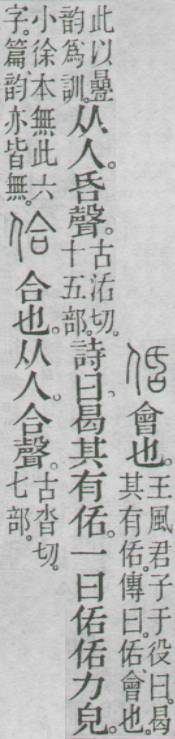 佸會也。王風君子于役曰。曷其有佸。傳曰。佸、會也。
此以疊韵爲訓。从人。昏聲。古活切。十五部。詩曰。曷其有佸。一曰佸佸力皃。
小徐本無此六字。篇、韵亦皆無。佮合也。从人。合聲。古沓切。七部。